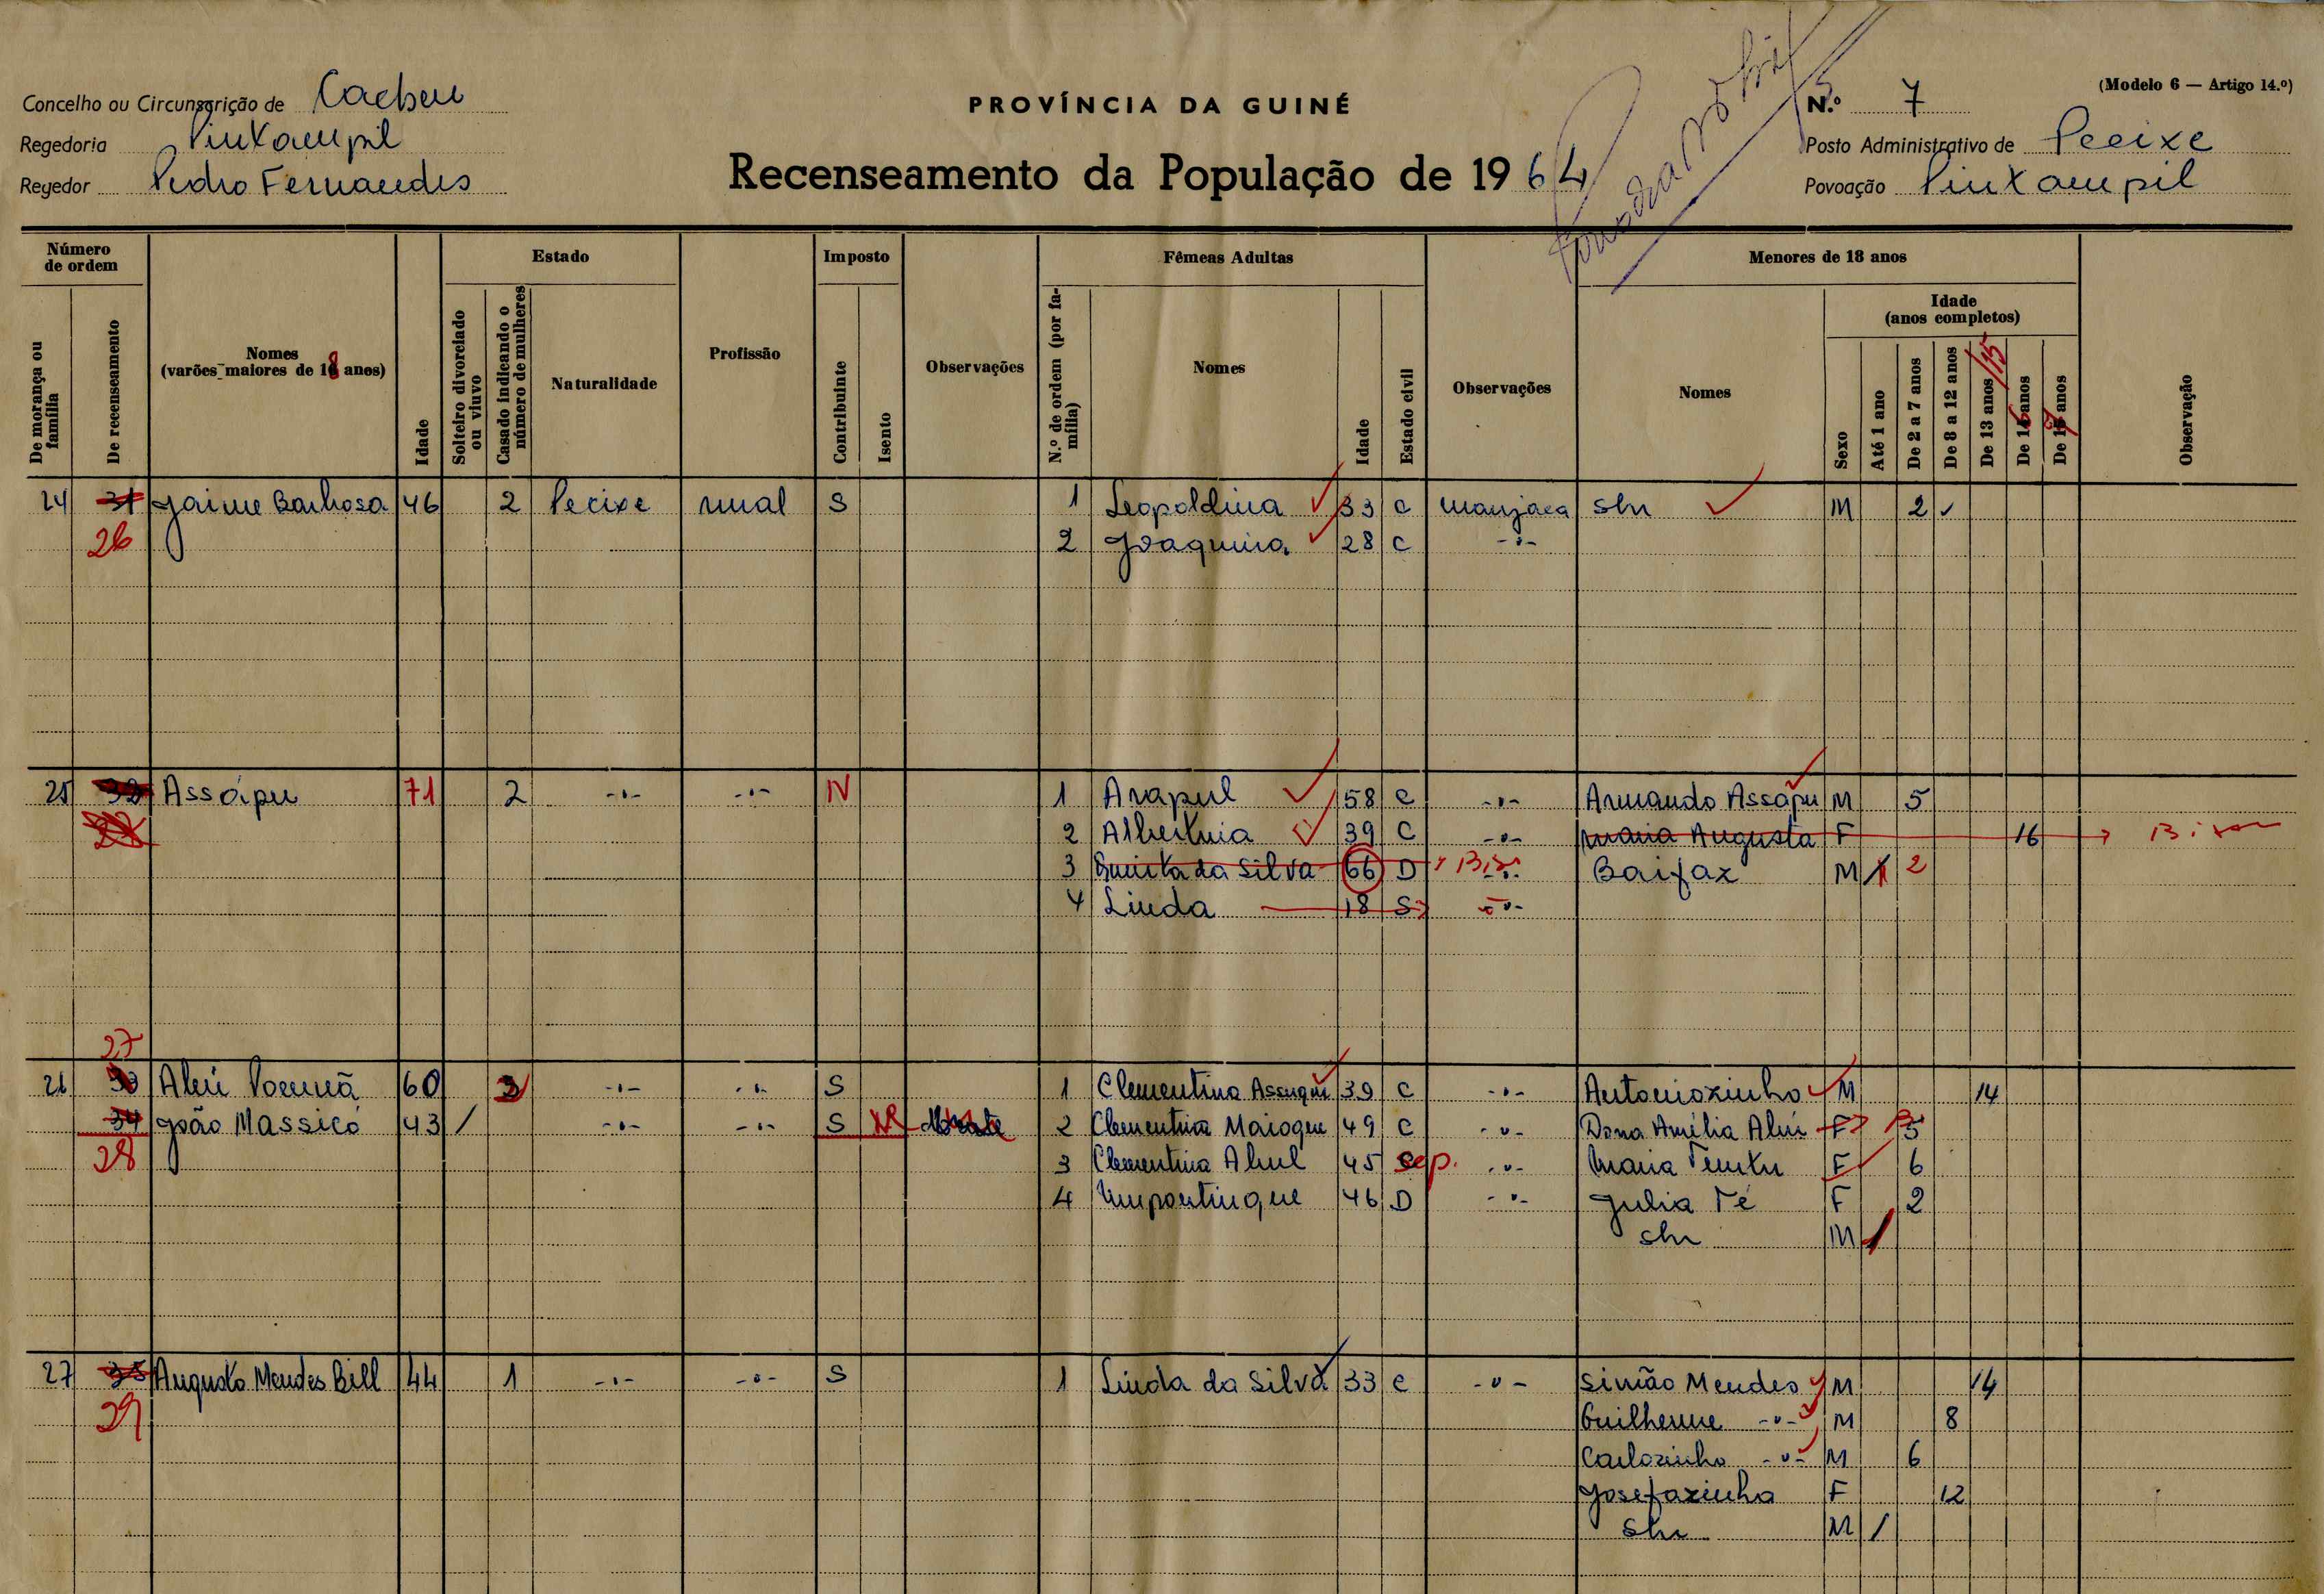 Concelho ou Circunscrição de Cacheu
Regedoria Pintampil
Regedor Pedro Fernandes
PROVÍNCIA DA GUINÉ
Recenseamento da População de 1964
(Modelo 6 — Artigo 14.º)
N.º 7
Posto Administrativo de Pecixe
Povoação Pintampil
Número de ordem
De morança ou família
De recenseamento
Nomes
(varões maiores de 18 anos)
Idade
Estado
Solteiro divorciado ou viuvo
Casado indicando o número de mulheres
Naturalidade
Profissão
Imposto
Contribuinte
Isento
Observações
Fêmeas Adultas
N.º de ordem (por família)
Nomes
Idade
Estado civil
Observações
Menores de 18 anos
Nomes
Sexo
Idade
(anos completos)
Até 1 ano
De 2 a 7 anos
De 8 a 12 anos
De 13 anos /15
De 16 anos
De 17 anos
Observação
24 31 Jaime Barbosa 46 2 Pecixe rural S 1 Leopoldina 33 C manjaca s/n M 2
26 2 Joaquina 28 C -"-
25 32 Assápu 71 2 -"- -"- IV 1 Arapul 58 C -"- Armando Assápu M 5
2 Albertina 39 C -"- Maria Augusta F 16
3 Quinta da Silva 66 D -"- Baifaz M 2
4 Linda 18 S -"-
27
26 33 Aluí 60 2 -"- -"- S 1 Clementina 39 C -"- Antoniozinho M 14
34 João Massicó 43 / -"- -"- S 2 Clementina Maioque 49 C -"- Dona Amélia Aluí F 5
28 3 Clementina Abul 45 sep. -"- Maria F 6
4 Umpontingue 46 D -"- Julia Té F 2
s/n M 1
27 35 Augusto Mendes Bill 44 1 -"- -"- S 1 Linda da Silva 33 C -"- Simão Mendes M 14
29 Guilherme -"- M 8
Carlozinho -"- M 6
Josefazinha F 12
s/n M /